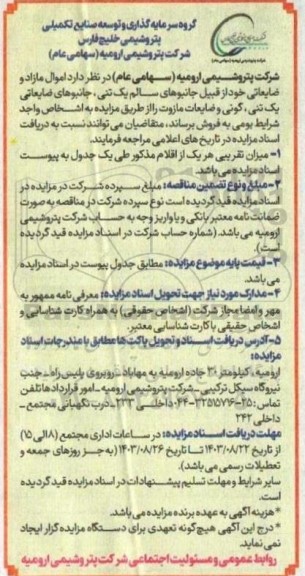 گروه سرمایه گذاری و توسعه صنایع تکمیلی
پتروشیمی خلیج فارس
شرکت پتروشیمی ارومیه (سهامی عام)
شرکت پتروشیمی ارومیه (سهامی عام) در نظر دارد اموال مازاد و
ضایعاتی خود از قبیل جانبوهای سالم یک تنی، جانبوهای ضایعاتی
یک تنی، گونی و ضایعات مازوت را از طریق مزایده به اشخاص واجد
شرایط بومی به فروش برساند، متقاضیان می توانند نسبت به دریافت
اسناد مزایده در تاریخ های اعلامی مراجعه فرمایند.
۱- میزان تقریبی هر یک از اقلام مذکور طی یک جدول به پیوست
اسناد مزایده می باشد.
۲- مبلغ و نوع تضمین مناقصه: مبلغ سپرده شرکت در مزایده در
اسناد مزایده قید گردیده است نوع سپرده شرکت در مناقصه به صورت
ضمانت نامه معتبر بانکی و یا واریز وجه به حساب شرکت پتروشیمی
ارومیه می باشد. (شماره حساب شرکت در اسناد مزایده قید گردیده
است).
۳- قیمت پایه موضوع مزایده: مطابق جدول پیوست در اسناد مزایده
می باشد.
۴- مدارک مورد نیاز جهت تحویل اسناد مزایده: معرفی نامه ممهور به
مهر و امضا مجاز شرکت (اشخاص حقوقی) به همراه کارت شناسایی و
اشخاص حقیقی با کارت شناسایی معتبر.
۵- آدرس دریافت اسناد و تحویل پاکت ها مطابق با مندرجات اسناد
مزایده:
ارومیه، کیلومتر ۳۰ جاده ارومیه به مهاباد - روبروی پلیس راه - جنب
نیروگاه سیکل ترکیبی - شرکت پتروشیمی ارومیه - امور قراردادها تلفن
تماس: ۲۵-۳۲۵۵۷۱۶-۰۴۴ داخلی ۲۳۳ - درب نگهبانی مجتمع -
داخلی ۲۴۲
مهلت دریافت اسناد مزایده: در ساعات اداری مجتمع (۸ الی ۱۵)
از تاریخ ۱۴۰۳/۰۸/۲۲ تا تاریخ ۱۴۰۳/۰۸/۲۶ (به جز روزهای جمعه و
تعطیلات رسمی می باشد).
سایر شرایط و مهلت تسلیم پیشنهادات در اسناد مزایده قید گردیده
است.
* هزینه آگهی به عهده برنده مزایده می باشد.
* درج این آگهی هیچ گونه تعهدی برای دستگاه مزایده گزار ایجاد
نمی نماید.
روابط عمومی و مسئولیت اجتماعی شرکت پتروشیمی ارومیه